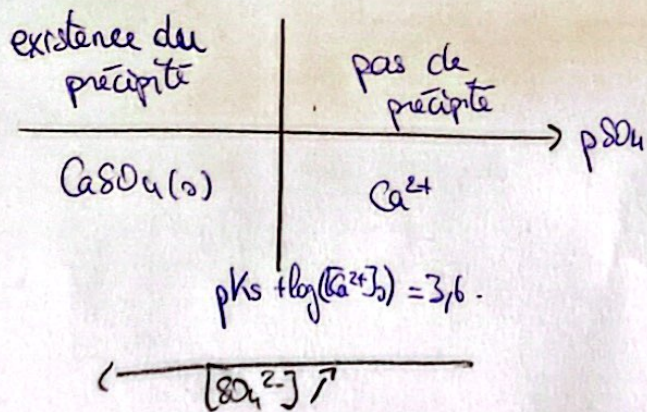 existence du
précipité
pas de
précipité
pSO₄
CaSO₄(s)
Ca²⁺
pKs + log([Ca²⁺]₀) = 3,6.
[SO₄²⁻] ↗